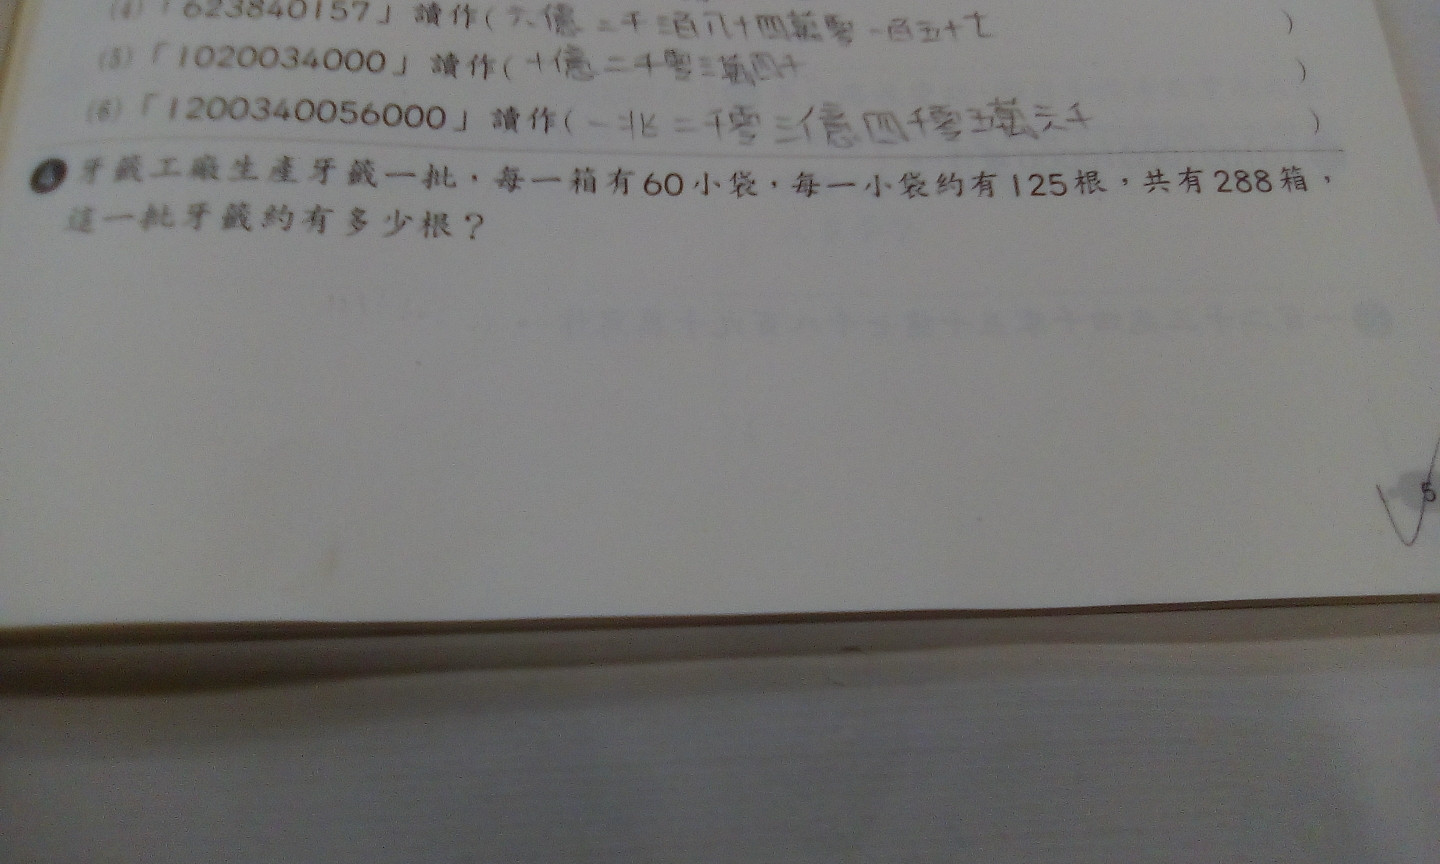 (4)「623840157」讀作(六億二千三百八十四萬零一百五十七)
(5)「1020034000」讀作(十億二千零三萬四千)
(6)「1200340056000」讀作(一兆二千零三億四千零五萬六千)
4 牙籤工廠生產牙籤一批，每一箱有60小袋，每一小袋約有125根，共有288箱，
這一批牙籤約有多少根？
5